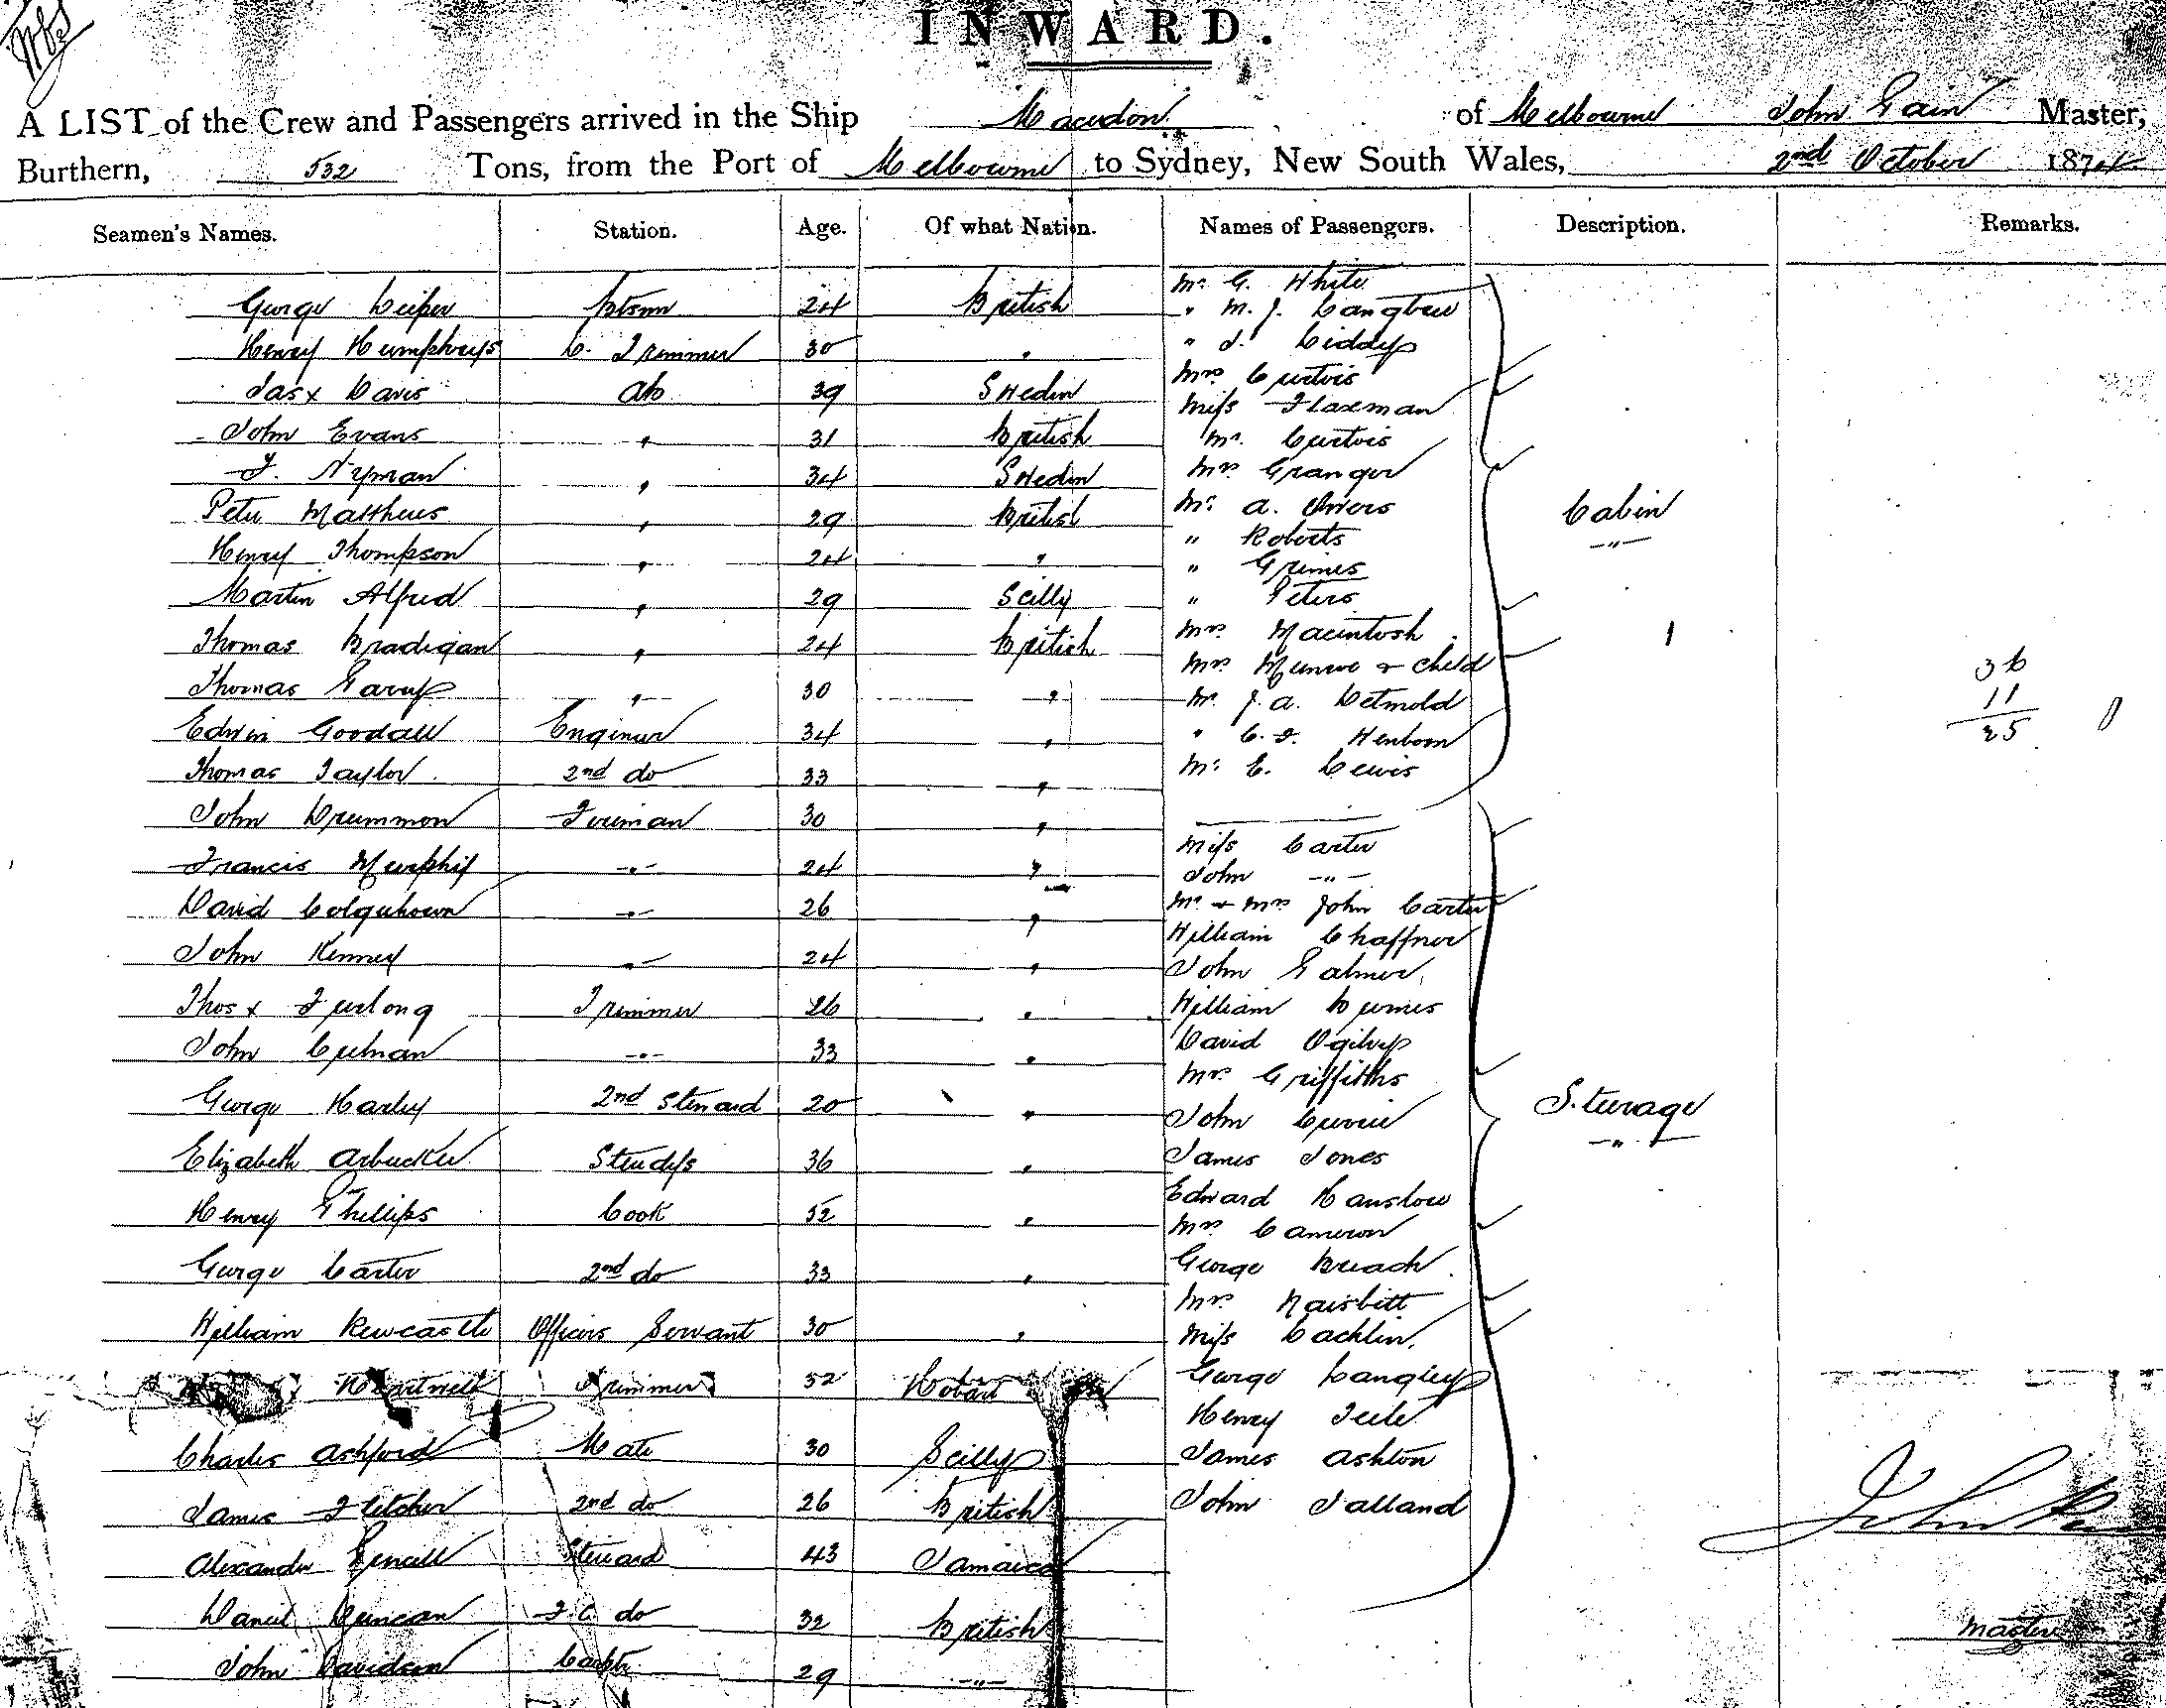 INWARD.
A LIST of the Crew and Passengers arrived in the Ship Macedon of Melbourne John Pain Master,
Burthern, 532 Tons, from the Port of Melbourne to Sydney, New South Wales, 2nd October 1874
Seamen's Names. Station. Age. Of what Nation. Names of Passengers. Description. Remarks.
Mr. G. White
George Leiper Btsmn 24 British " M. J. Langtree
Henry Humphreys L. Trimmer 30 " " J. Liddy
Mrs. Curtois
Jas x Davis Ab 39 Sweden Miss Flaxman
John Evans " 31 British Mr. Curtois
F. Nyman " 34 Sweden Mrs. Granger
Peter Matthews " 29 British Mr. A. Owers
Henry Thompson " 24 " " Roberts
" Grimes Cabin
Martin Alfred " 29 Scilly " Peters
Thomas Bradigan " 24 British Mrs. Macintosh 1
Mrs. Munroe & Child 36
Thomas Garvy " 30 " Mr. J. A. Detmold 11
Edwin Goodall Engineer 34 " " C. F. Henborn 25
Thomas Taylor 2nd do 33 " Mr. E. Lewis
John Drummon Foreman 30 "
Miss Carter
Francis Murphy " 24 " John "
David Colquhoun " 26 " Mr. & Mrs. John Carter
William Chaffner
John Kenney " 24 " John Palmer
Thos x Furlong Trimmer 26 " William Burnes
John Culnan " 33 " David Ogilvy
Mrs. Griffiths
George Harley 2nd Steward 20 " John Currie Steerage
Elizabeth Arbuckle Stewdess 36 " James Jones
Edward Hanslow
Henry Phillips Cook 52 " Mrs. Cameron
George Carter 2nd do 33 " George Breach
Mrs. Naisbitt
William Newcastle Officers Servant 30 " Miss Lachlin
Hartwell Trimmer 52 Hobart George Langley
Henry Teele
Charles Ashford Mate 30 Scilly James Ashton
James Fletcher 2nd do 26 British John Talland
Alexander Steward 43 Jamaica John
Daniel Duncan F.C. do 32 British Master
John Davidson 29 "